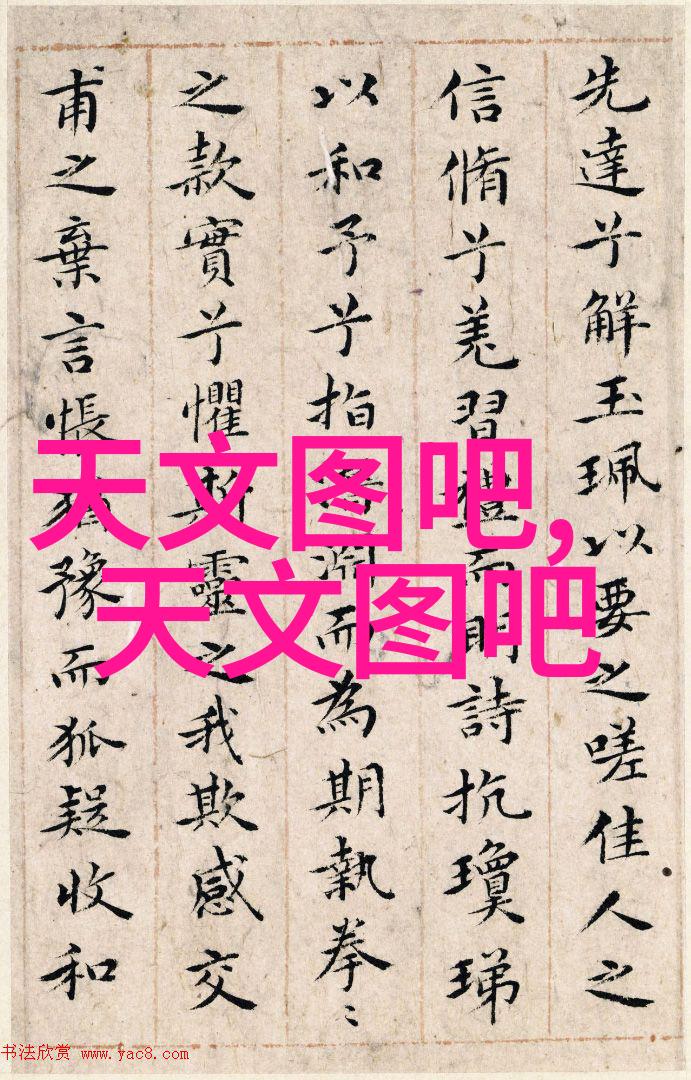 先達兮解玉珮以要之嗟佳人之
信脩兮羌習禮而明詩抗瓊珶
以和予兮指淵而為期執拳〻
之款實兮懼斯靈之我欺感交
甫之棄言悵猶豫而狐疑收和
天文图吧,
天文图吧
书法欣赏 www.yac8.com